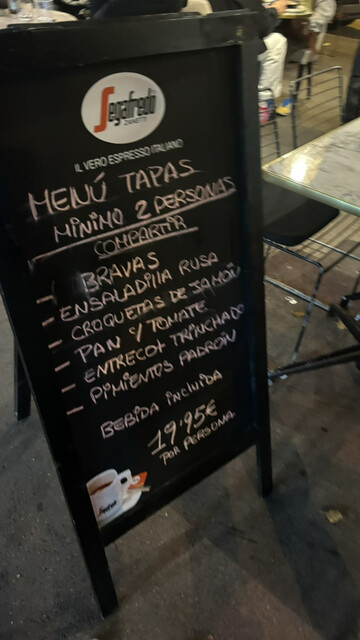 Segafredo
ZANETTI
IL VERO ESPRESSO ITALIANO
MENÚ TAPAS
MÍNIMO 2 PERSONAS
COMPARTIR
- BRAVAS
- ENSALADILLA RUSA
- CROQUETAS DE JAMÓN
- PAN C/ TOMATE
- ENTRECOT TRINCHADO
- PIMIENTOS PADRÓN
BEBIDA INCLUIDA
19.95€
POR PERSONA